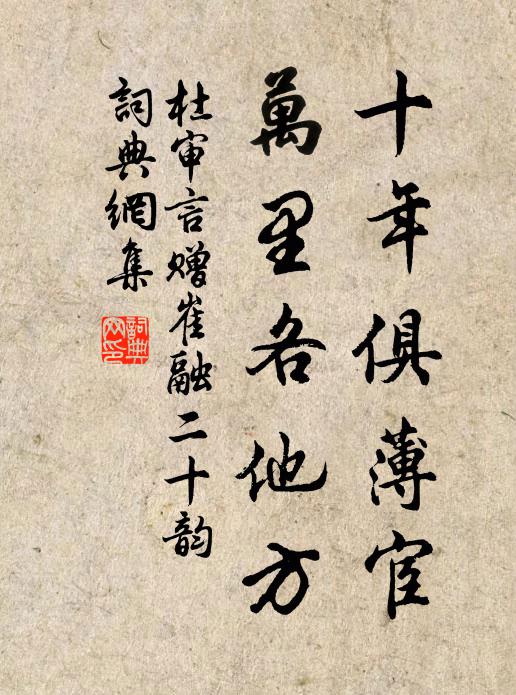 十年俱薄宦
萬里各他方
杜审言赠崔融二十韵
詞典網集
詞典网印